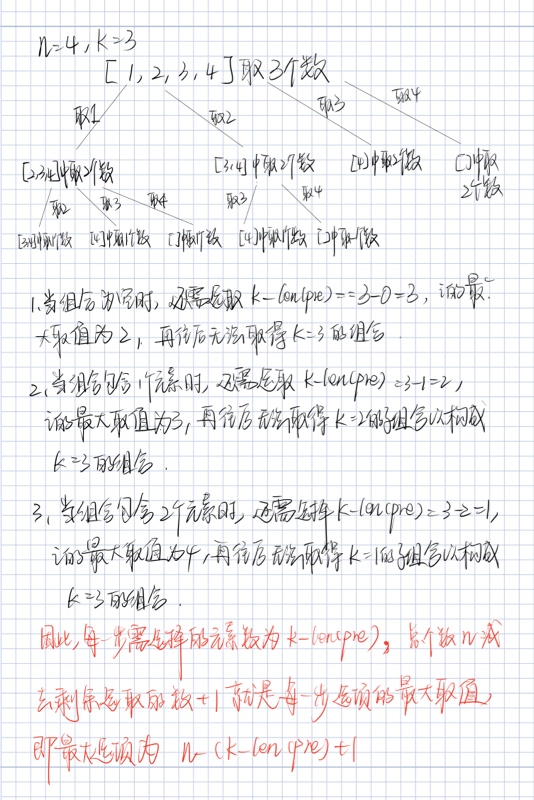 n=4, k=3
[1,2,3,4]取3个数
取1 取2 取3 取4
[2,3,4]中取2个数 [3,4]中取2个数 [4]中取2个数 []中取2个数
取2 取3 取4 取3 取4
[3,4]中取1个数 [4]中取1个数 []中取1个数 [4]中取1个数 []中取1个数
1、当组合为空时，还需选取 k-len(pre)==3-0=3，i的最
大取值为2，再往后无法取得k=3的组合.
2、当组合包含1个元素时，还需选取 k-len(pre)=3-1=2，
i的最大取值为3，再往后无法取得k=2的子组合以构成
k=3的组合.
3、当组合包含2个元素时，还需选择k-len(pre)=3-2=1，
i的最大取值为4，再往后无法取得k=1的子组合以构成
k=3的组合.
因此，每一步需选择的元素数为k-len(pre)，总个数n减
去剩余选取的数+1就是每一步选项的最大取值，
即最大选项为 n-(k-len(pre)+1